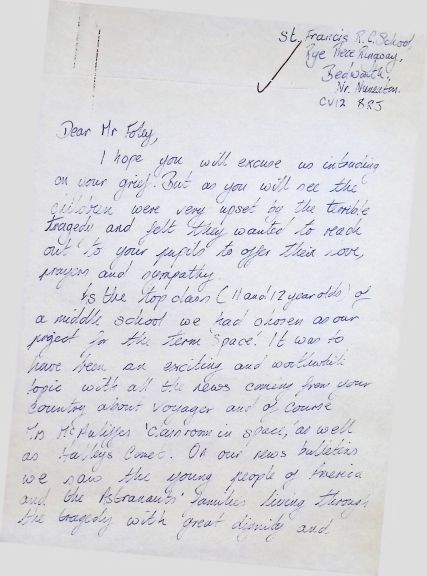 St. Francis R.C. School,
Rye Piece Ringway,
Bedworth,
Nr. Nuneaton.
CV12 8RJ
Dear Mr Foley,
I hope you will excuse us intruding
on your grief. But as you will see the
children were very upset by the terrible
tragedy and felt they wanted to reach
out to your pupils to offer their love,
prayers and sympathy.
As the top class (11 and 12 year olds) of
a middle school we had chosen as our
project for the term 'Space'. It was to
have been an exciting and worthwhile
topic with all the news coming from your
Country about Voyager and of course
Mrs McAuliffes 'Classroom in Space,' as well
as Halleys Comet. On our news bulletins
we saw the young people of America
and the Astronauts' families living through
the tragedy with great dignity and